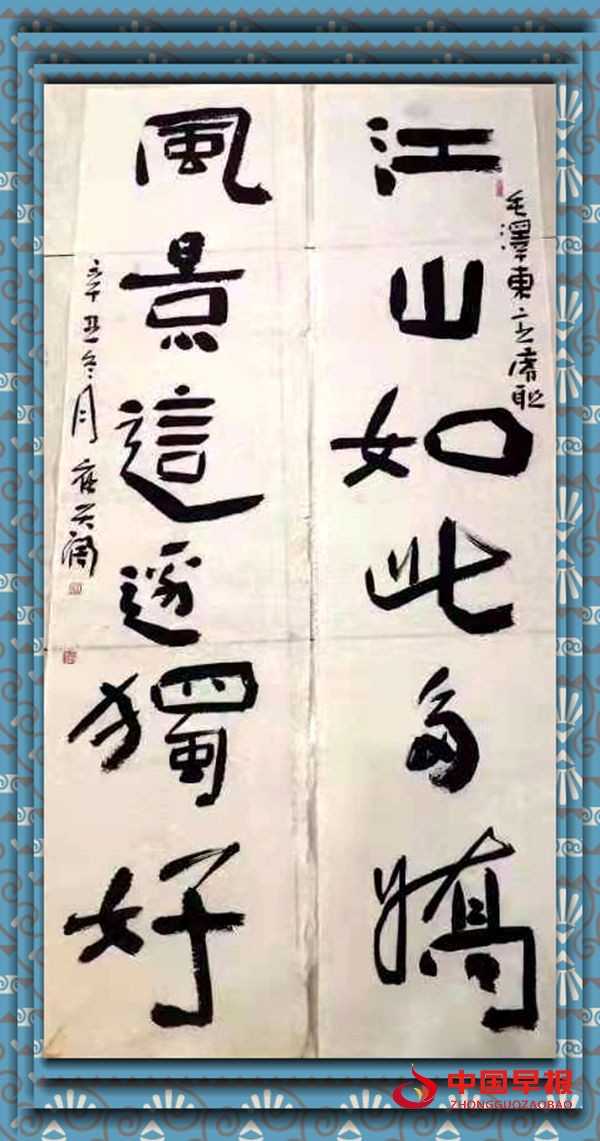 毛澤東主席聯
江山如此多嬌
風景這邊獨好
辛丑冬月
中国早报
ZHONGGUOZAOBAO